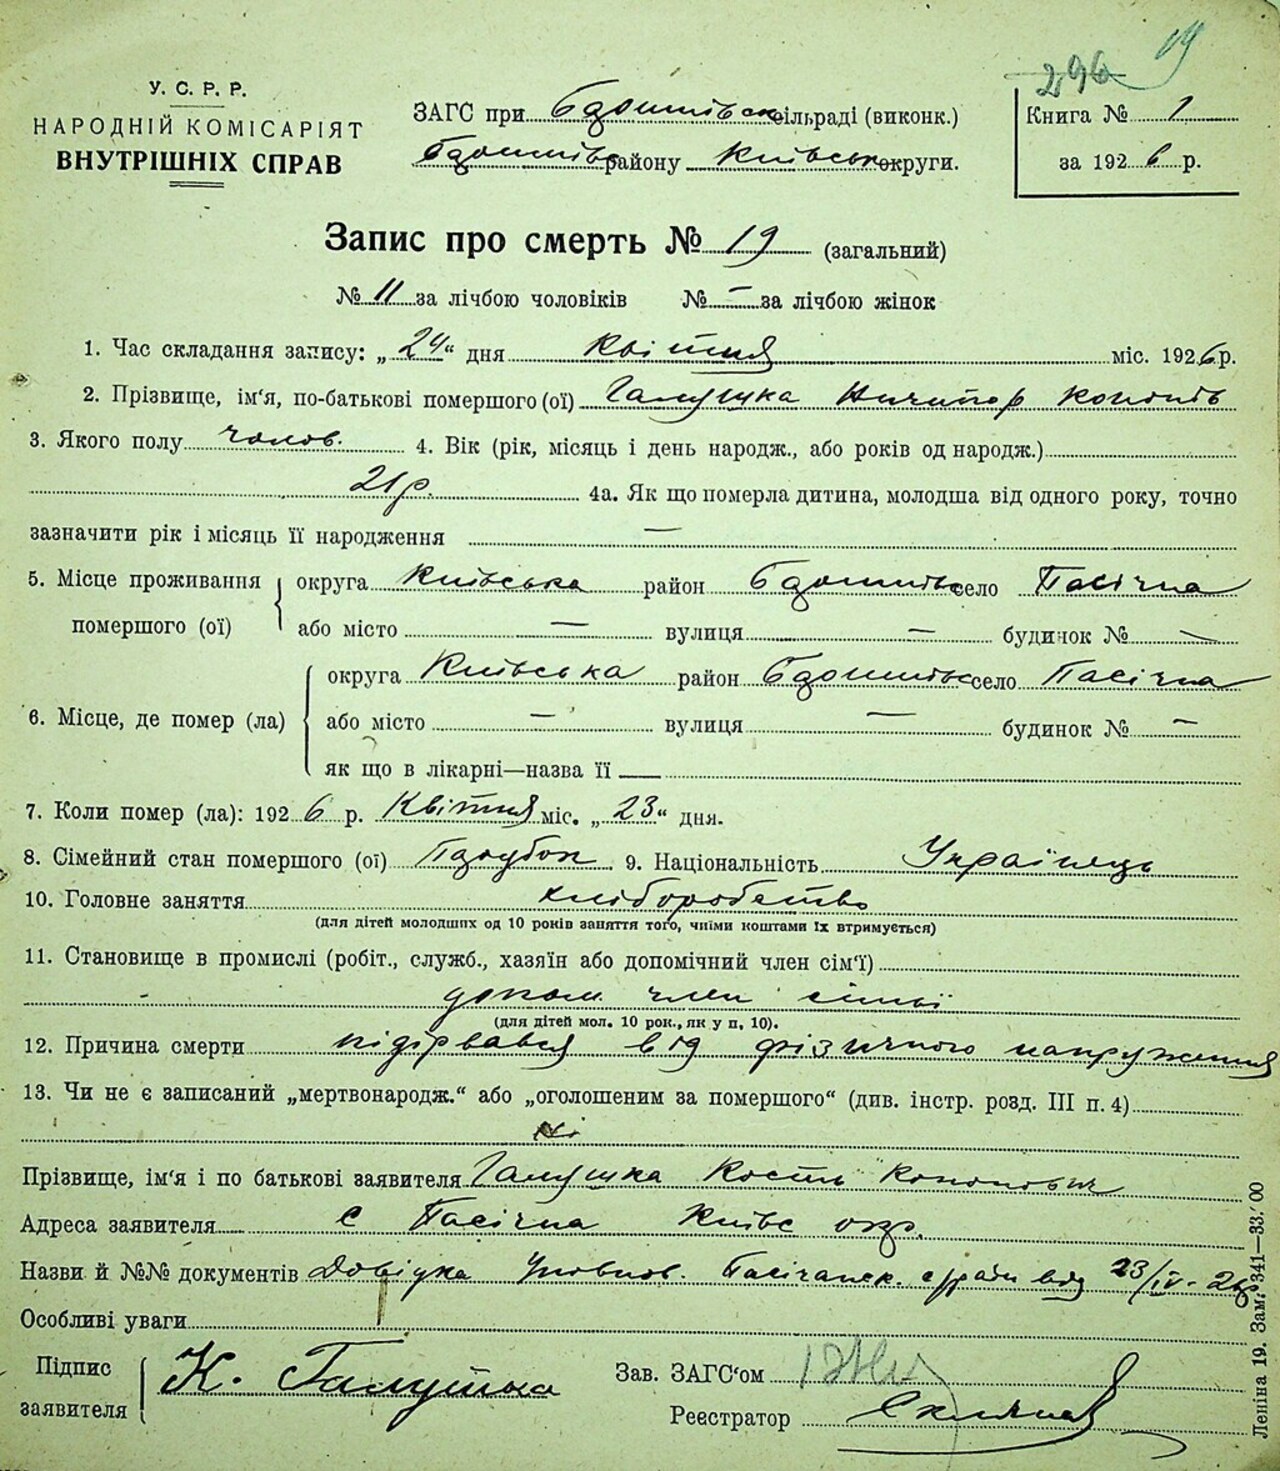 296 19
У. С. Р. Р.
НАРОДНІЙ КОМІСАРІЯТ
ВНУТРІШНІХ СПРАВ
ЗАГС при Бдонівськ сільраді (виконк.)
району Київськ округи.
Книга № 1
за 1926 р.
Запис про смерть № 19 (загальний)
№ 11 за лічбою чоловіків № — за лічбою жінок
1. Час складання запису: „24“ дня Квітня міс. 1926 р.
2. Прізвище, ім'я, по-батькові помершого (ої) Галушка Ничипор Кононів
3. Якого полу чолов. 4. Вік (рік, місяць і день народж., або років од народж.)
21 р. 4а. Як що померла дитина, молодша від одного року, точно
зазначити рік і місяць її народження —
5. Місце проживання помершого (ої) округа Київська район село Пасічна
або місто — вулиця — будинок № —
6. Місце, де помер (ла) округа Київська район село Пасічна
або місто — вулиця — будинок № —
як що в лікарні—назва її —
7. Коли помер (ла): 1926 р. Квітня міс. „23“ дня.
8. Сімейний стан помершого (ої) Парубок 9. Національність Українець
10. Головне заняття хліборобство
(для дітей молодших од 10 років заняття того, чиїми коштами їх втримується)
11. Становище в промислі (робіт., служб., хазяїн або допомічний член сім'ї)
допом. член сім'ї
(для дітей мол. 10 рок., як у п, 10).
12. Причина смерти підірвався від фізичного напруження
13. Чи не є записаний „мертвонародж.“ або „оголошеним за помершого“ (див. інстр. розд. III п. 4)
Ні
Прізвище, ім'я і по батькові заявителя Галушка Кость Кононович
Адреса заявителя с Пасічна Київс окр.
Назви й №№ документів Довідка Уповнов. Пасічанск. с/ради від 23/IV - 26р
Особливі уваги
Підпис заявителя К. Галушка
Зав. ЗАГС'ом
Реєстратор
Леніна 19. Зам. 341—33.'00